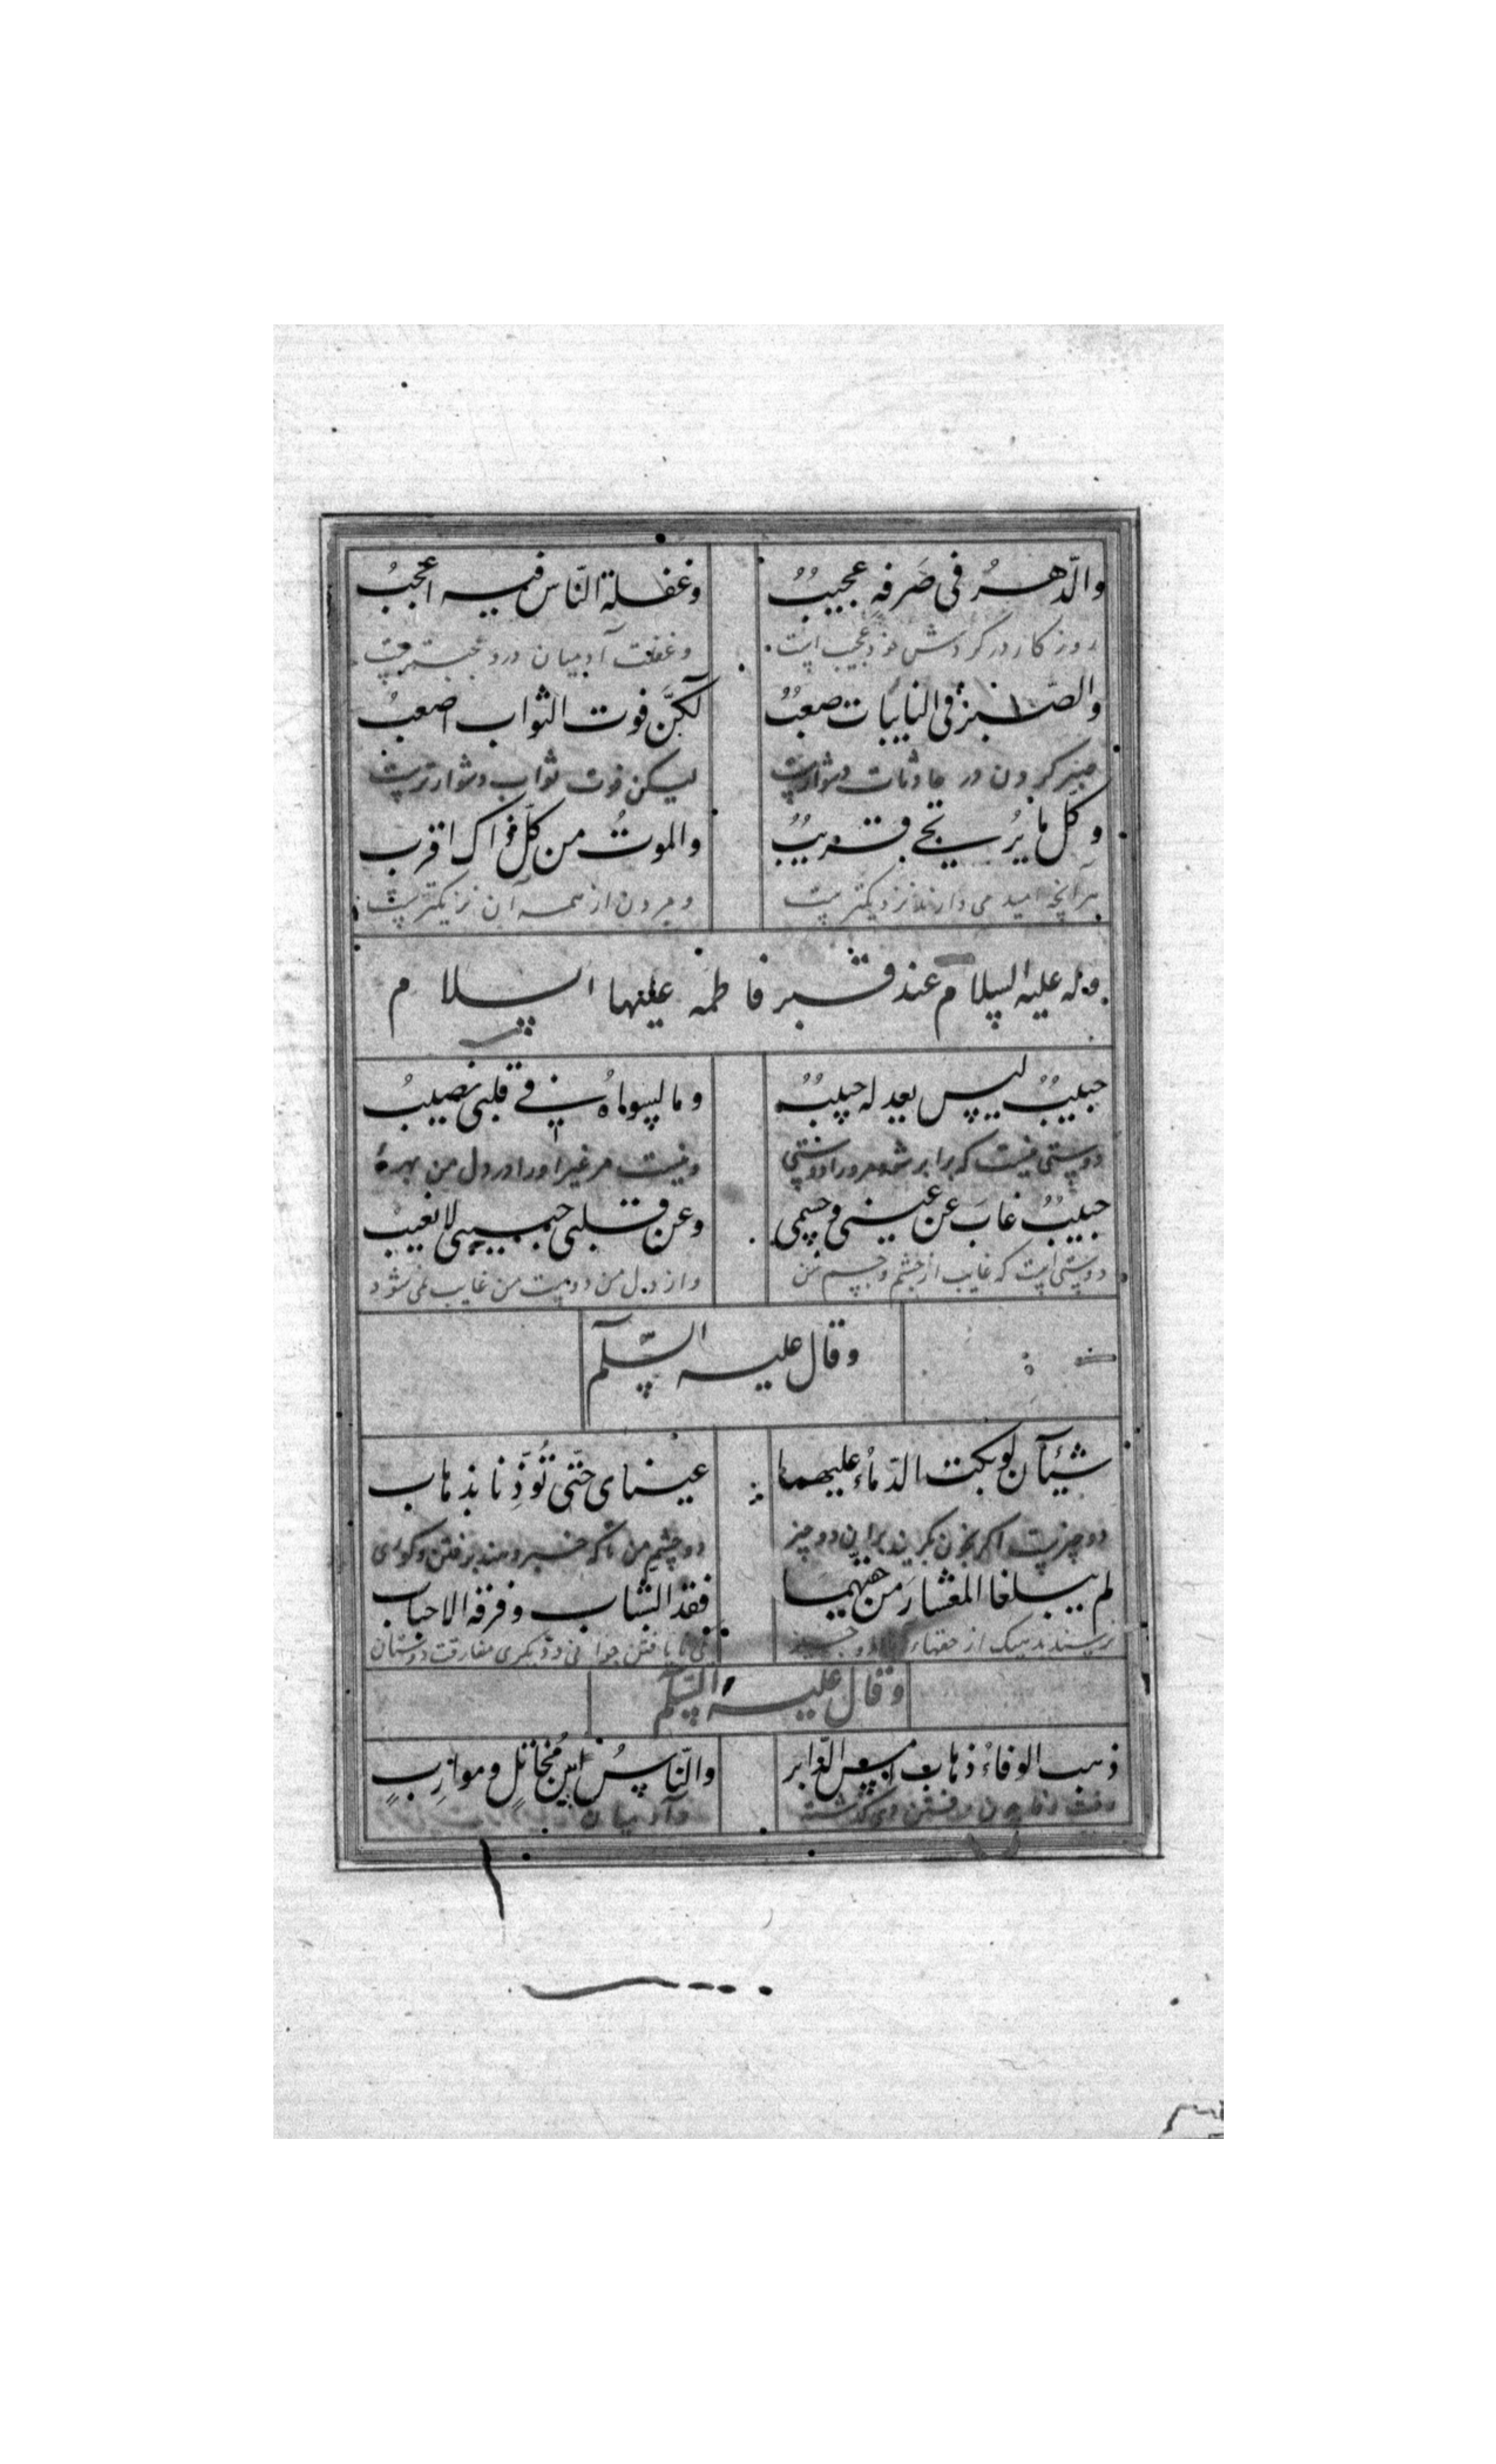 والدّهرُ فی صَرفهِ عجیبٌ وغفلة النّاس فیه اعجبُ
روزکار در کردش خود عجیب است وغفلت آدمیان درو عجبترست
والصّبرُ فی النایبات صعبٌ لکنَّ فوت الثواب اصعبُ
صبر کردن در حادثات دشوارست لیکن فوت ثواب دشوارترست
وکل ما یُرتجی قریبٌ والموتُ من کلّ ذاک اقرب
هر آنچه امید می دارند نزدیکترست ومردن از همه آن نزیکترست
وله علیه السلام عند قبر فاطمه علیها السلام
حبیبٌ لیس یعدله حبیبٌ وما لسواهُ فی قلبی نصیبُ
دوستی نیست که برابر شود مرورا دوستی ونیست مر غیر اورا در دل من بهرهٔ
حبیبٌ غابَ عن عینی وجسمی وعن قلبی حبیبی لا یغیب
دوستی است که غایب از چشم وجسم من واز دل من دوست من غایب نمی شود
وقال علیه السّلم
شیئآن لو بکت الدّماءُ علیهما عینای حتّی تُوذِنا بذهاب
دو چیزست اکر بخون بکریند براین دو چیز دو چشم من تا که خبر دهند برفتن وکوری
لم یبلغا المعشارَ من حقّهما فقد الشباب وفرقه الاحباب
نرسیند بده یک از حقهاء دو چیز نایافتن جوانی ودیکری مفارقت دوستان
وقال علیه السّلم
ذهب الوفاءُ ذهاب امس الغابر والنّاسُ بین مُخاتلٍ وموارِبٍ
رفت وفا چون رفتن دی کذشته وآدمیان